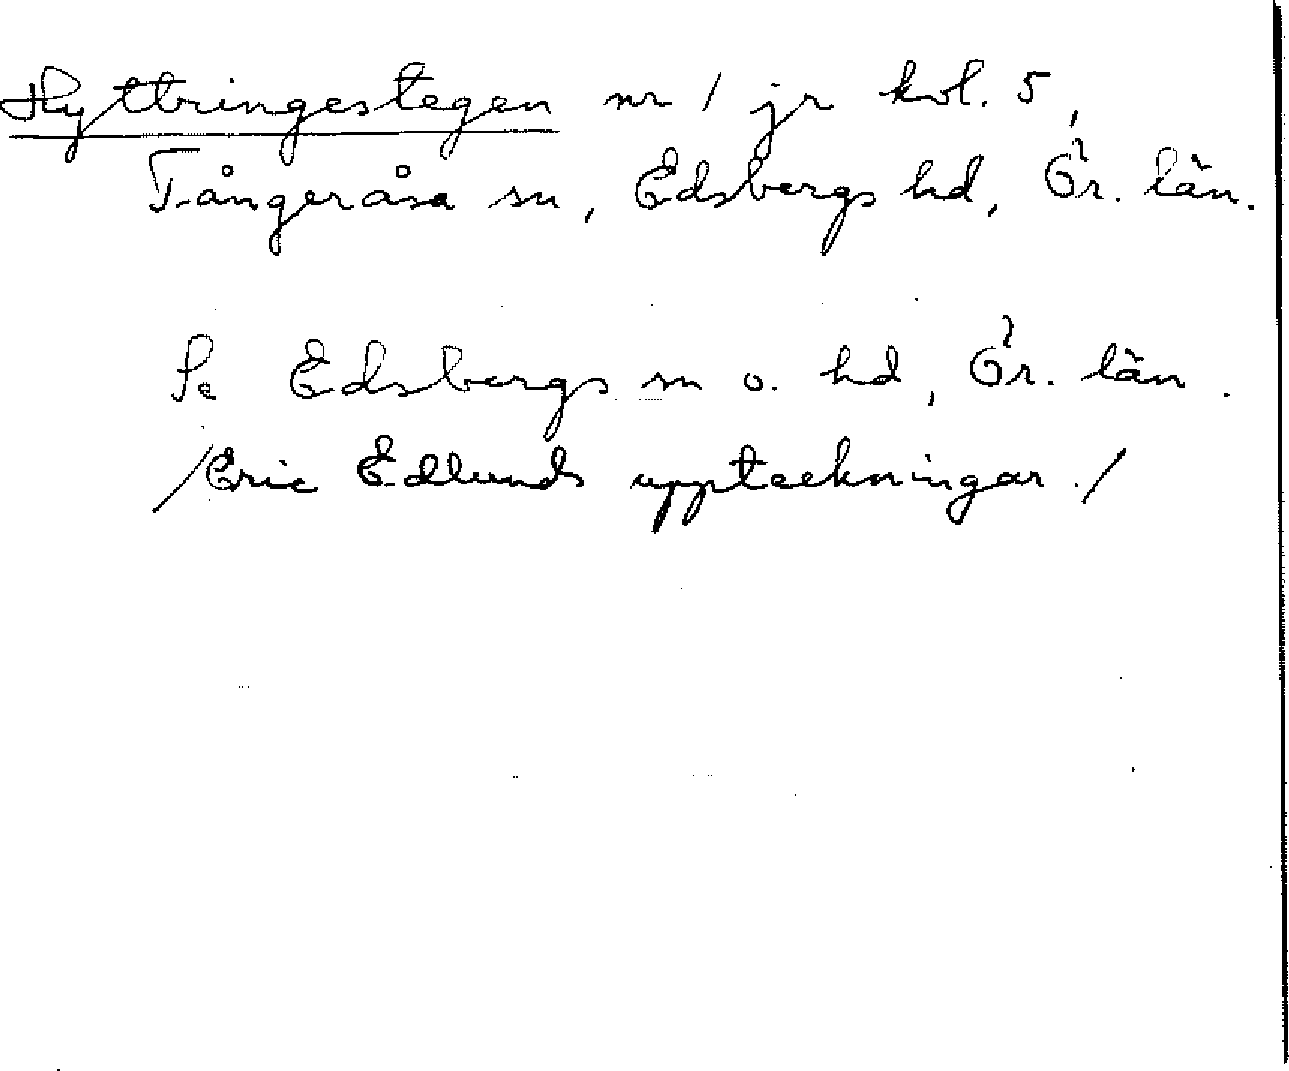 Hyttringestegen nr 1 jr kol. 5,
Tångeråsa sn, Edsbergs hd, Ör. län.
Se Edsbergs sn o. hd, Ör. län.
/Eric Edlunds uppteckningar./